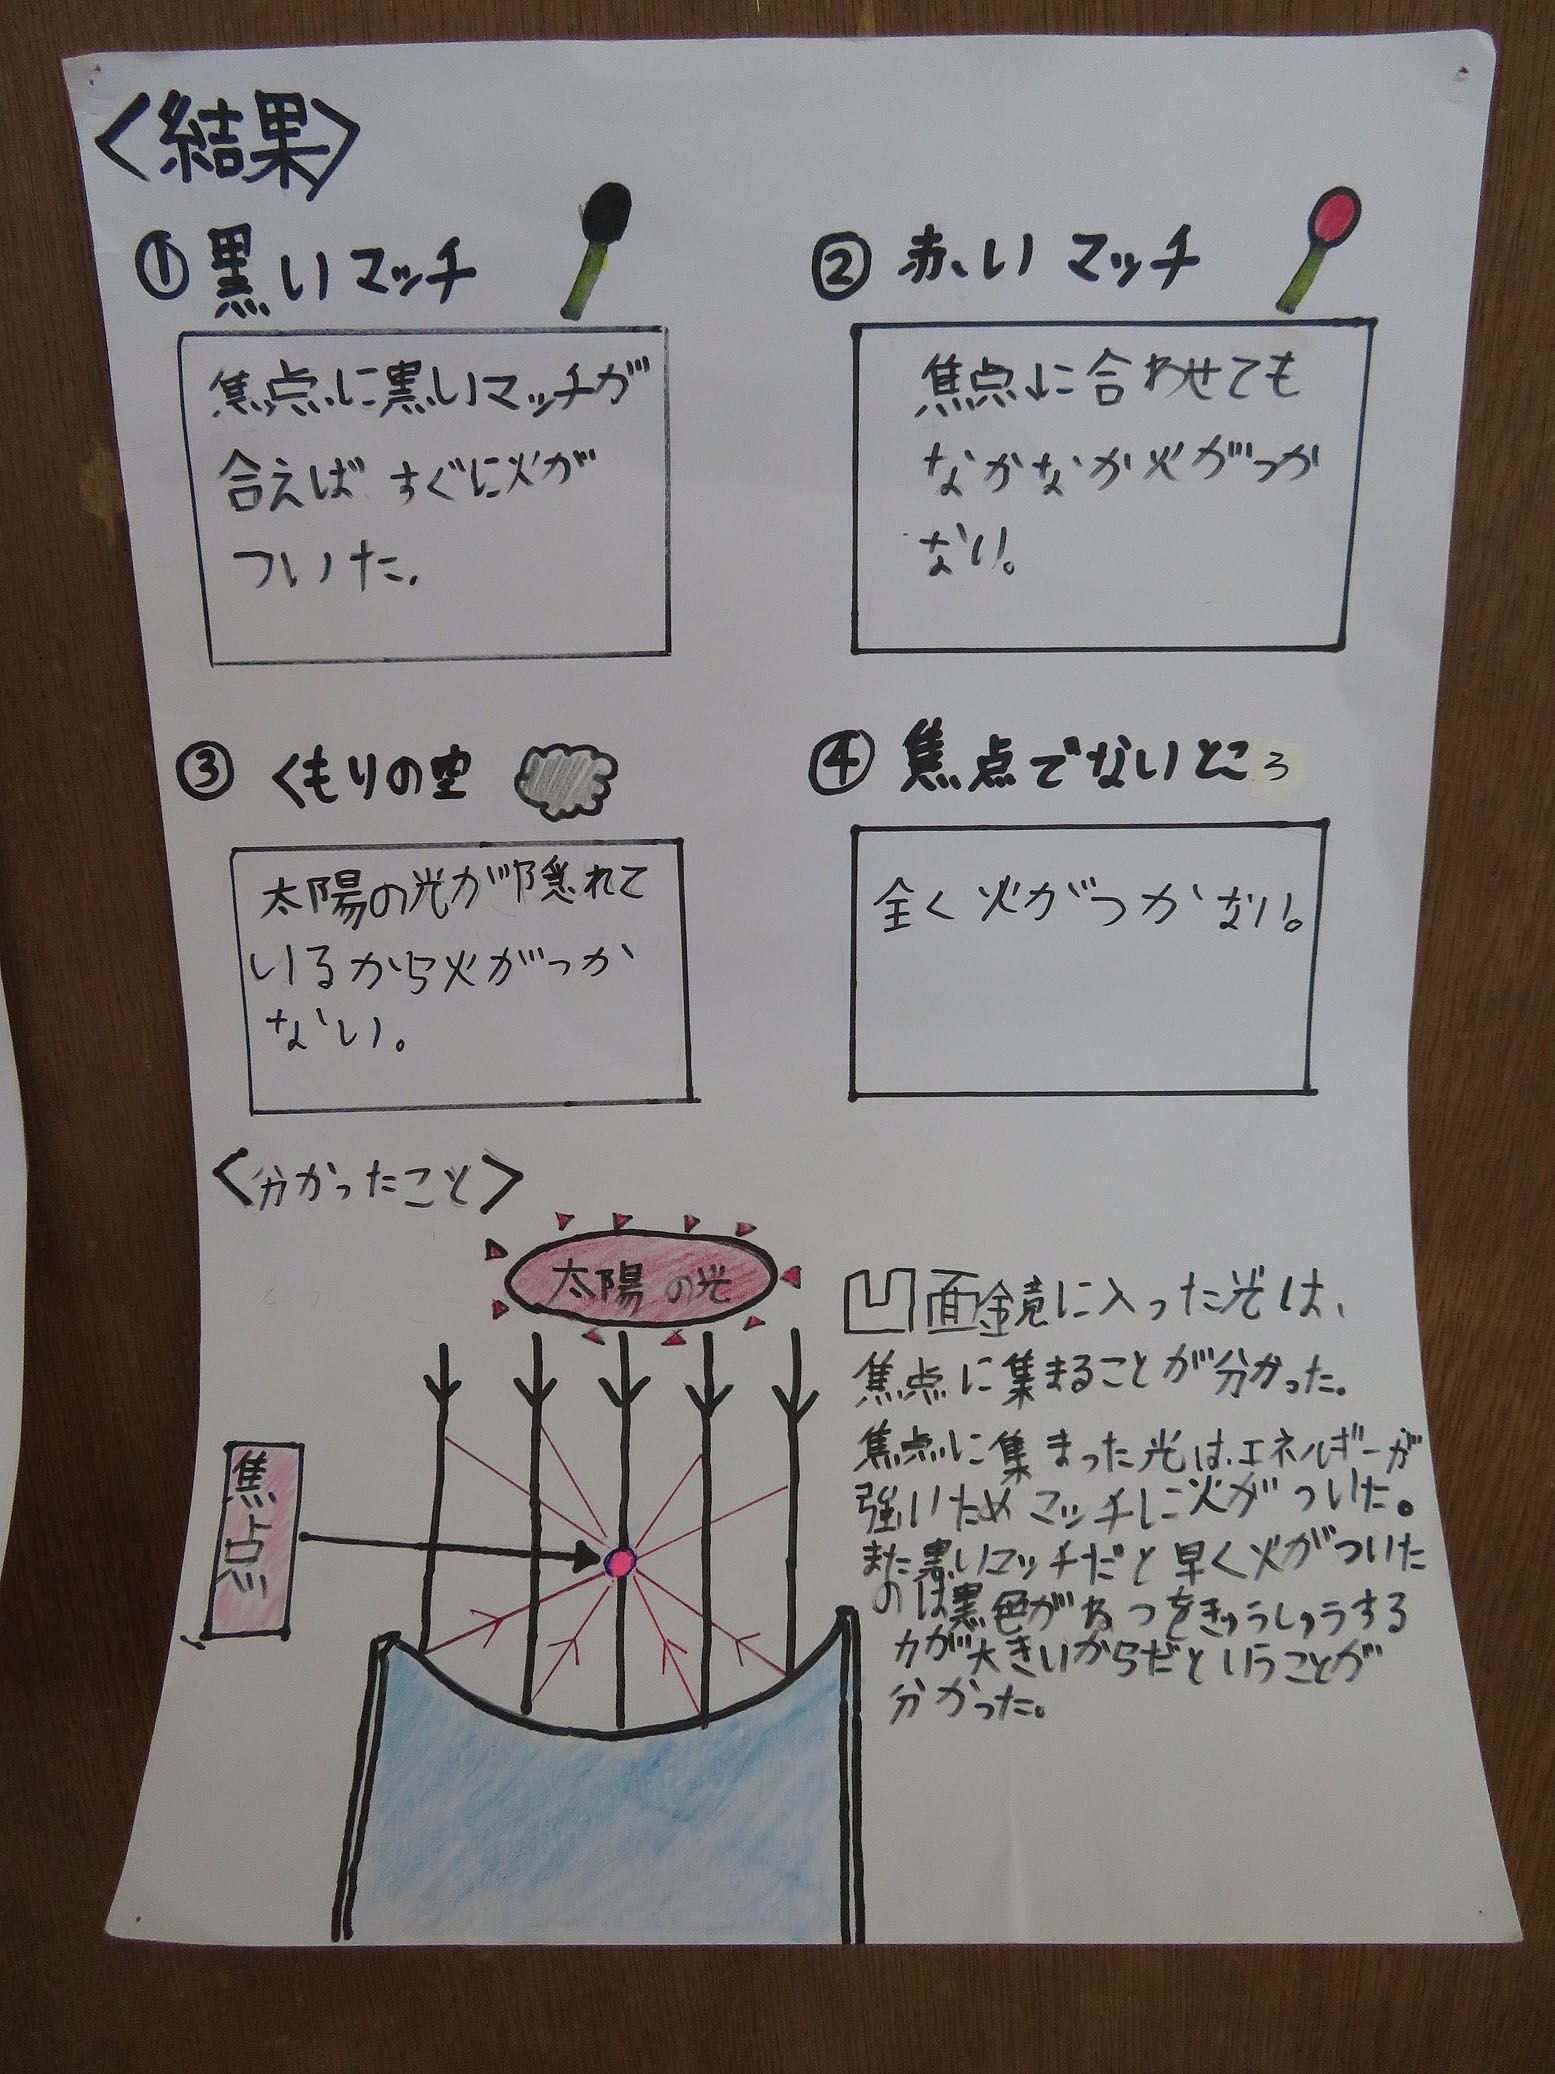 〈結果〉
①黒いマッチ
焦点に黒いマッチが
合えば すぐに火が
ついた.
②赤いマッチ
焦点に合わせても
なかなか火がつか
ない。
③くもりの空
太陽の光が隠れて
いるから火がつか
ない。
④焦点でないところ
全く火がつかない。
〈分かったこと〉
太陽の光
焦点
凹面鏡に入った光は、
焦点に集まることが分かった。
焦点に集まった光は、エネルギーが
強いためマッチに火がついた。
また黒いマッチだと早く火がついた
のは黒色がねつをきゅうしゅうする
力が大きいからだということが
分かった。